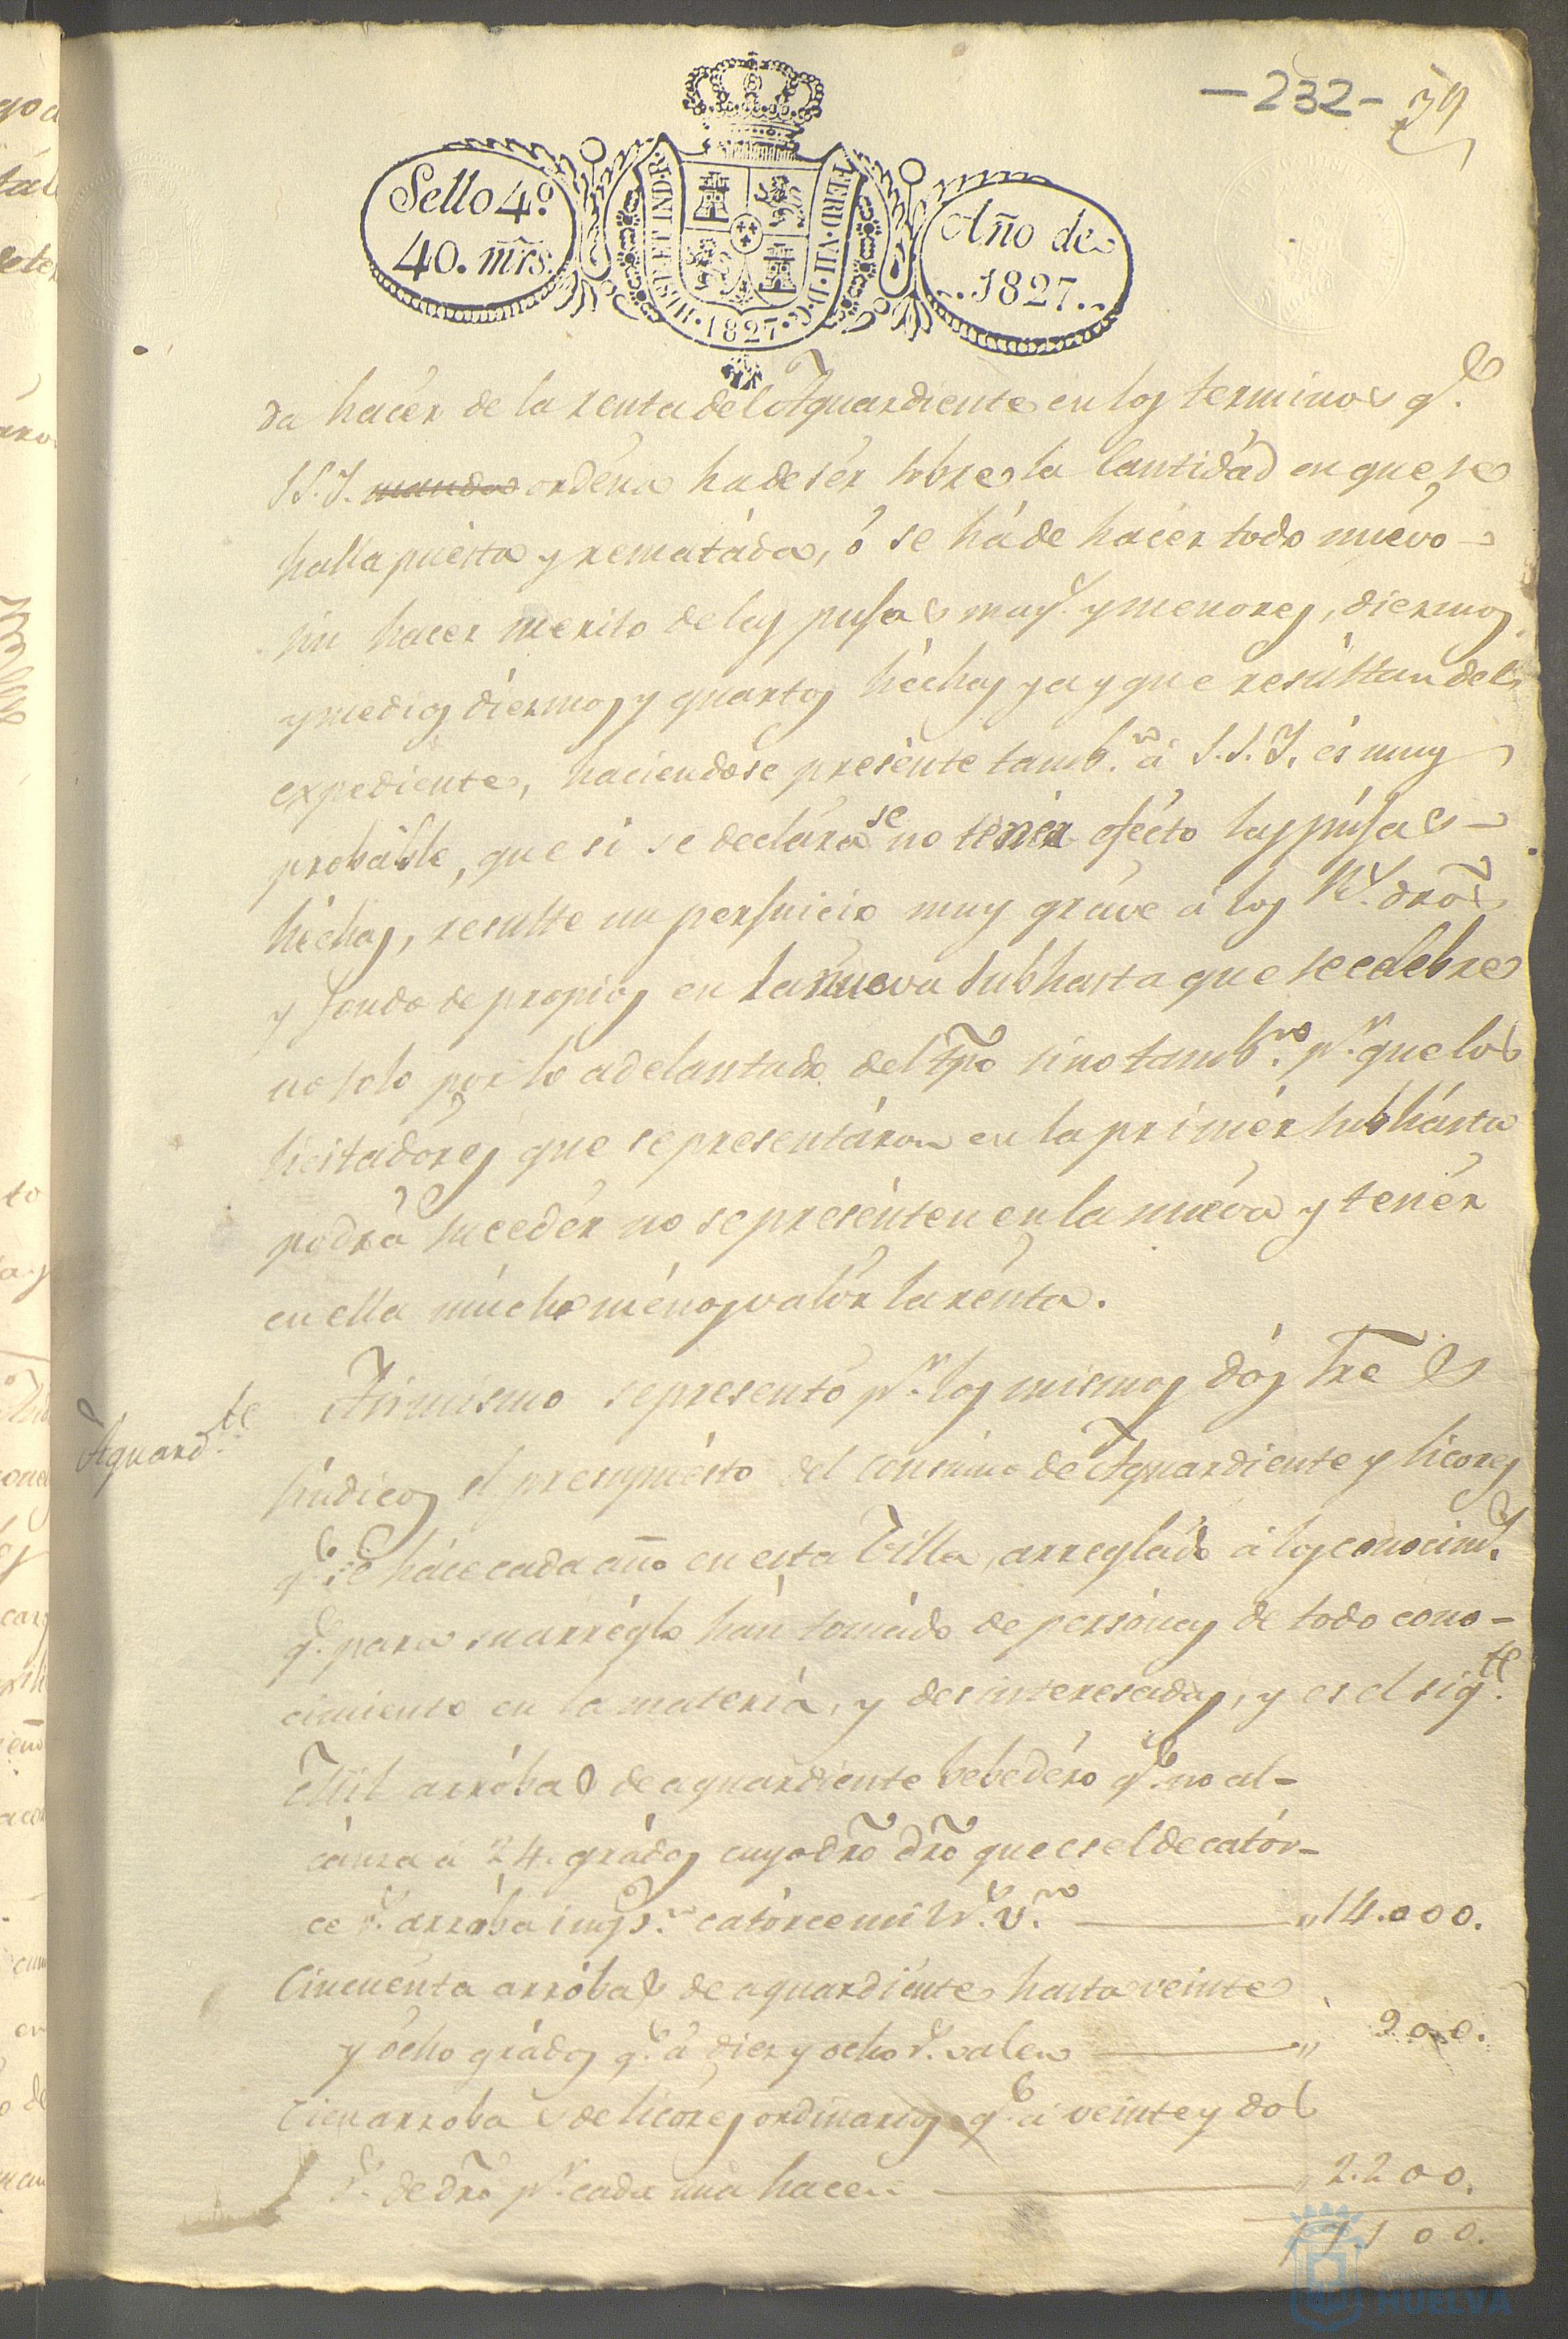 -232- 39
Sello 4º
40. mrs.
HISP. ET IND. R. 1827. FERD. VII. D. G.
Año de
1827.
da hacér de la renta del Aguardiente en los terminos q.e
S.S.Y. mando ordéna ha de sér sobre la Cantidád en que se
halla puésta y rematáda, ó se há de hacér todo nuévo
sin hacer merito de las pujas may.s y menores, diezmos
y medios diezmos y quartos héchos ya y que resúltan del
expediente, haciendose presénte tamb.n á S.S.Y. és muy
probáble, que si se declárase no tenér efécto las pújas
héchas, resulte un perjuicio muy gráve á los R.s dros
y fondo de propios en la nueva subhasta que se celebre
no solo por lo adelantado del tpo sino tamb.n p.r que los
licitadóres que se presentáron en la primér subhásta
podrá sucedér no se presénten en la nuéva y tenér
en ella múcho ménos valór la rénta.
Aguard.te
Asimismo se presentó p.r los mismos dós Sres
síndicos el presupuésto del consúmo de Aguardiente y licores
q.e se háce cada año en esta Villa, arregládo á los conocim.s
q.e para su arréglo hán tomádo de persónas de todo cono-
cimiento en la matéria, y desinteresadas, y es el sig.te
Mil arróbas de aguardiente bebedéro q.e no al-
cánza a 24. grádos cuyo dro dro que es el de catór-
ce r.s arróba imp.n catórce mil r.s v.n ,, 14.000.
Cincuénta arróbas de aguardiénte hasta veinte
y ócho grádos q.e á diez y ocho r.s valen ,, 900.
Cien arrobas de licores ordinarios q.e á veinte y dos
r.s de dro p.r cada una hacen ,, 2.200.
17.100.
HUELVA